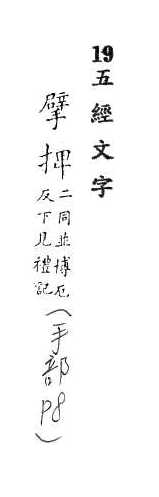 19五經文字
擘捭二同並搏厄
反下見禮記(手部P8)